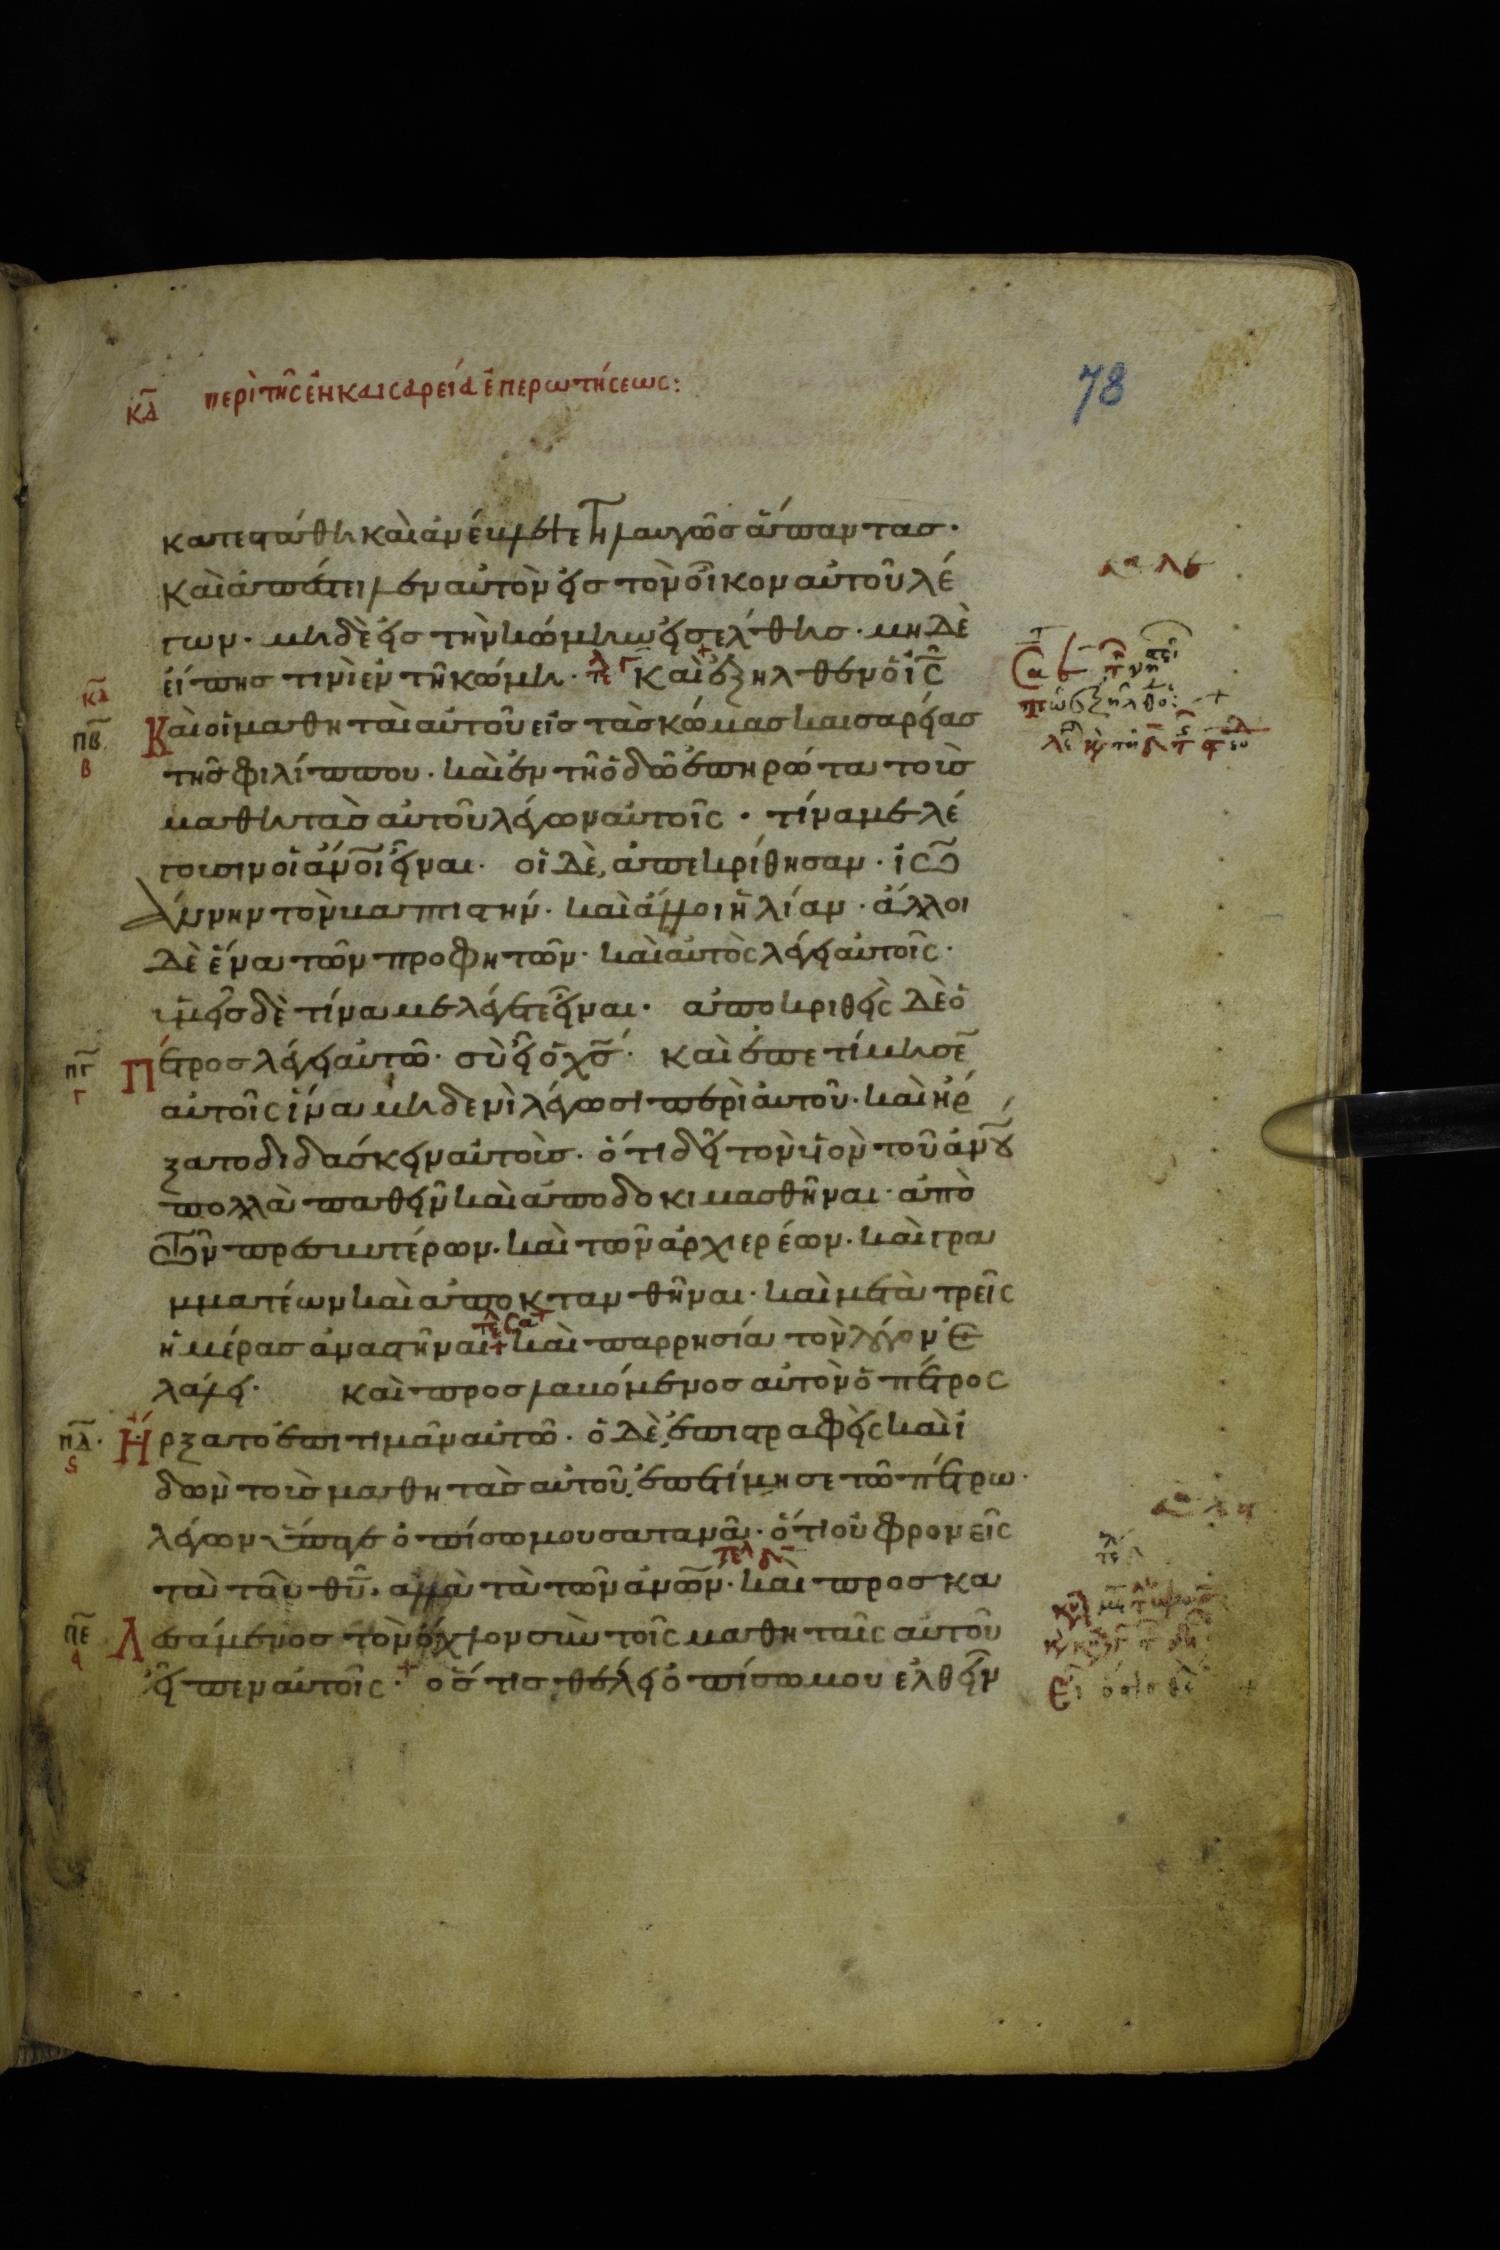 κδ περὶ τῆς ἐν καισαρεία ἐπερωτήσεως:
78
κατεστάθη καὶ ἀνέβλεψε τηλαυγῶς ἅπαντας·
Καὶ ἀπέστειλεν αὐτὸν εἰς τὸν οἶκον αὐτοῦ λέ
γων· μηδὲ εἰς τὴν κώμην εἰσελθης· μη δὲ
εἴπης τινὶ ἐν τῆ κώμη· Καὶ ἐξηλθεν ὁ ις
κδ
πβ β Καὶ οἱ μαθηταὶ αὐτοῦ εἰς τὰς κώμας καισαρείας
τῆς φιλίππου· καὶ ἐν τῆ ὁδῶ ἐπηρώτα τοὺς
μαθητὰς αὐτοῦ λέγων αὐτοῖς· τίνα με λέ
γουσιν οἱ ἀνοι εἶναι· οἱ δὲ ἀπεκρίθησαν· ἰω
άννην τὸν βαπτιστήν· καὶ ἄλλοι ἠλίαν· ἄλλοι
δὲ ἕνα τῶν προφητῶν· καὶ αὐτὸς λέγει αὐτοῖς·
ὑμεῖς δὲ τίνα με λέγετε εἶναι· ἀποκριθεὶς δὲ ὁ
πγ γ Πέτρος λέγει αὐτῶ· σὺ εἶ ὁ χς· καὶ ἐπετίμησε
αὐτοῖς ἵνα μηδενὶ λέγωσι περὶ αὐτοῦ· καὶ ἤρ
ξατο διδάσκειν αὐτοὺς· ὅτι δεῖ τὸν υἱὸν τοῦ ἀνου
πολλὰ παθεῖν καὶ ἀποδοκιμασθῆναι· ἀπὸ
τῶν πρεσβυτέρων· καὶ τῶν ἀρχιερέων· καὶ γρα
μματέων καὶ ἀποκτανθῆναι· καὶ μετὰ τρεῖς
ἡμέρας ἀναστῆναι καὶ παρρησία τὸν λόγον ἐ
λάλει· καὶ προσλαβόμενος αὐτὸν ὁ πέτρος
πδ ς Ἤρξατο ἐπιτιμᾶν αὐτῶ· ὁ δὲ ἐπιστραφεὶς καὶ ἰ
δὼν τοὺς μαθητὰς αὐτοῦ ἐπετίμησε τῶ πέτρω·
λέγων ὕπαγε ὀπίσω μου σατανᾶ· ὅτι οὐ φρονεῖς
τὰ τοῦ θυ· ἀλλὰ τὰ τῶν ἀνων· καὶ προσκα
πε Λεσάμενος τὸν ὄχλον σὺν τοῖς μαθηταῖς αὐτοῦ
εἶπεν αὐτοῖς· ὅστις θέλει ὀπίσω μου ἐλθεῖν